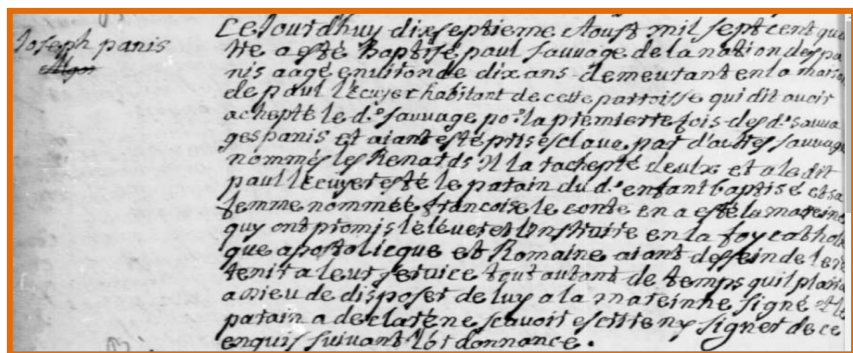 Joseph panis
Ce Jourdhuy dixseptieme Aoust mil sept cent qua
tre a esté Baptisé paul sauvage de la nation des pa
nis aagé environ de dix ans demeurant en la maison
de paul Lécuyer habitant de cette parroisse qui dit avoir
achepté le d. sauvage po. la premierre fois des d. sauva
ges panis et aiant esté pris esclave par d'autres sauvages
nommés les Renards Il la rachepté deulx et a le dit
paul lécuyer esté le parain du d. enfant baptisé et sa
femme nommée francoise le conte en a esté la mareine
quy ont promis lélever et Linstruire en la foy catholi
que apostolicque et Romaine aiant dessein de le re
tenir a leur service tout autant de temps quil plaira
a dieu de disposer de luy a la mareinne signé et le
parain a declaré ne scavoir escrire ny signer de ce
enquis suivant lordonnance.